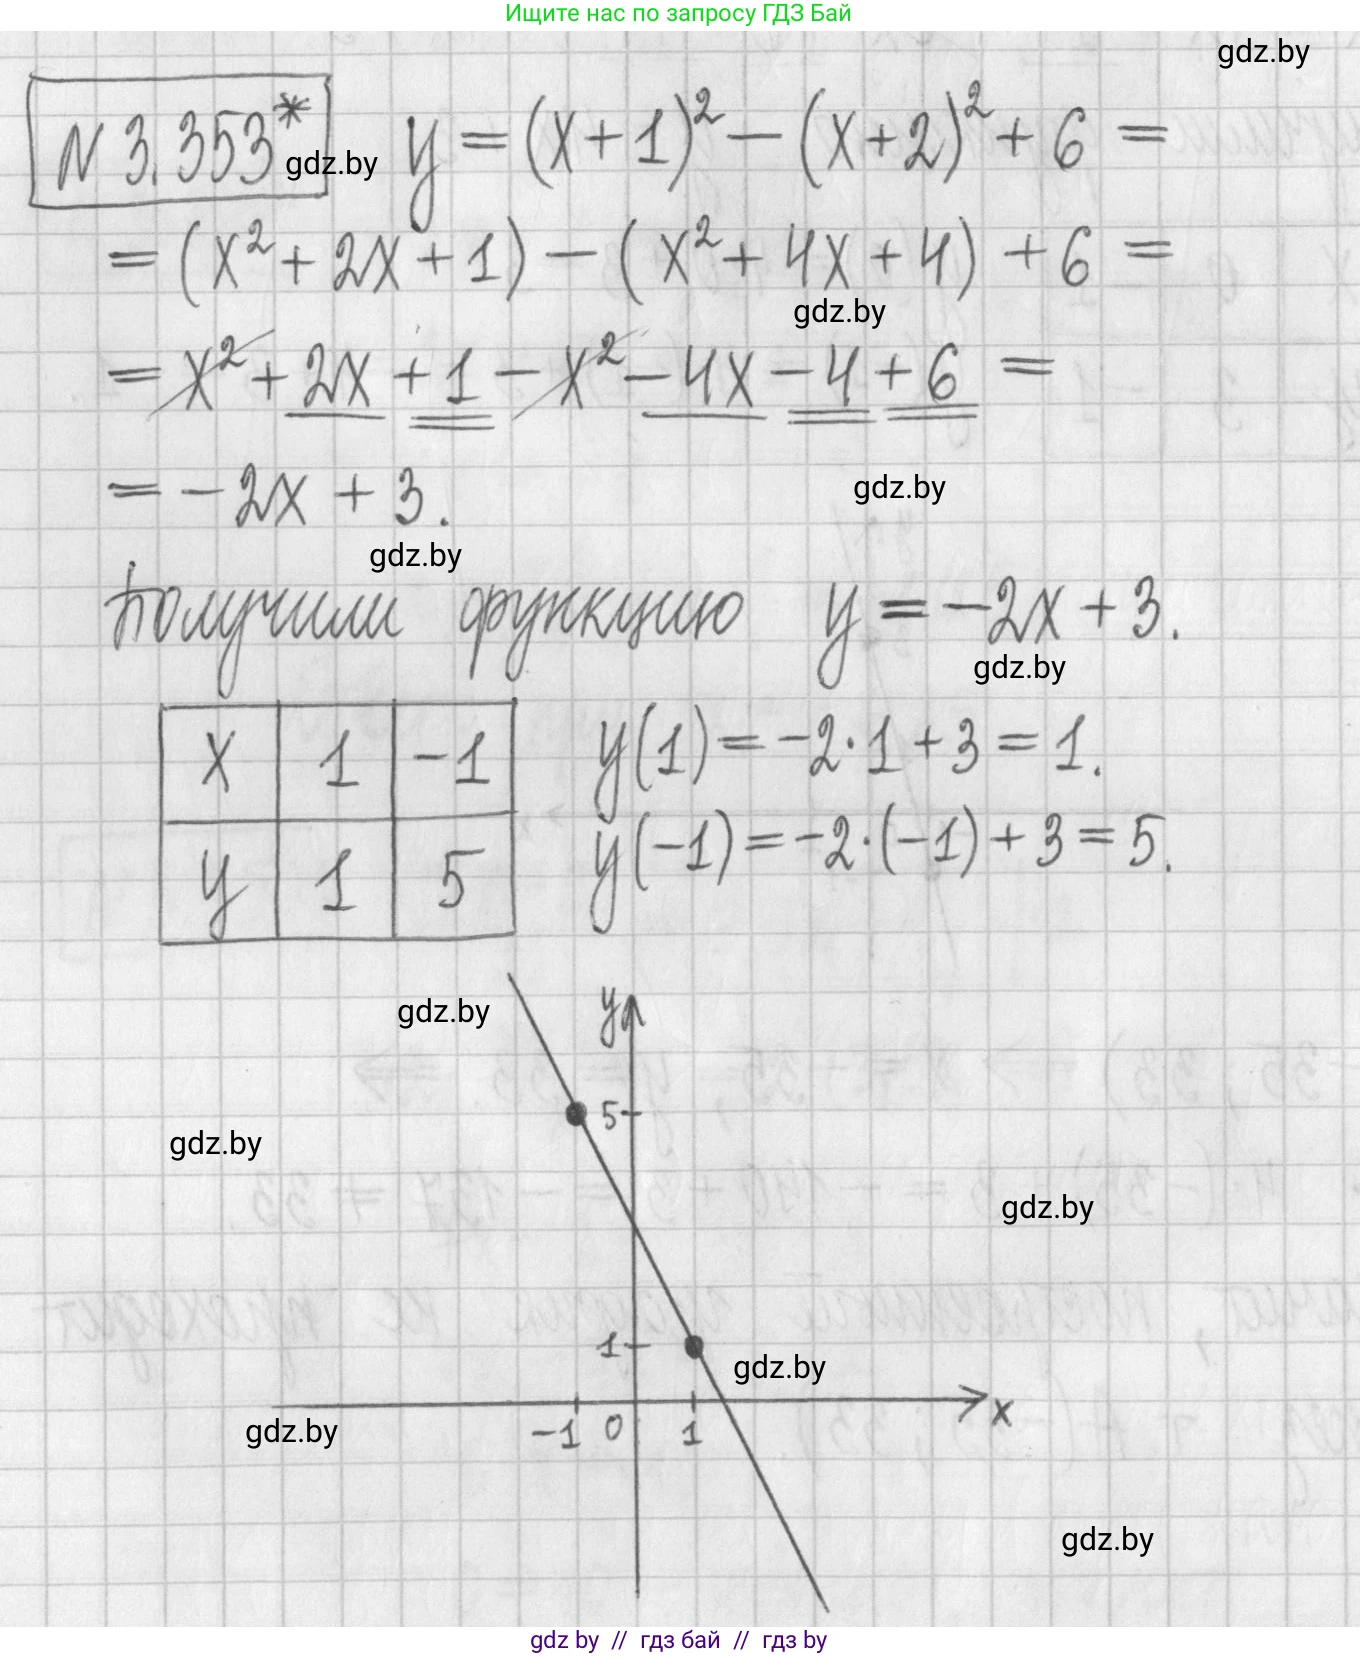 Ищите нас по запросу ГДЗ Бай
gdz.by
N 3.353* y = (x+1)² − (x+2)² + 6 =
gdz.by
= (x² + 2x + 1) − (x² + 4x + 4) + 6 =
gdz.by
= x² + 2x + 1 − x² − 4x − 4 + 6 =
= −2x + 3.
gdz.by
gdz.by
Получили функцию y = −2x + 3.
gdz.by
x 1 −1
y(1) = −2·1 + 3 = 1.
y 1 5
y(−1) = −2·(−1) + 3 = 5.
gdz.by
y
5
gdz.by
gdz.by
1
gdz.by
−1 0 1 x
gdz.by
gdz.by
gdz by // гдз бай // гдз by